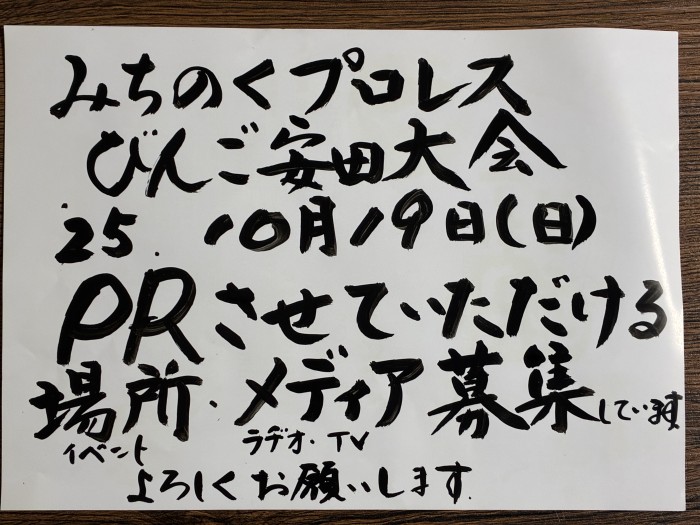 みちのくプロレス
びんご安田大会
'25. 10月19日(日)
PRさせていただける
場所・メディア募集しています
イベント ラヂオ・TV
よろしくお願いします